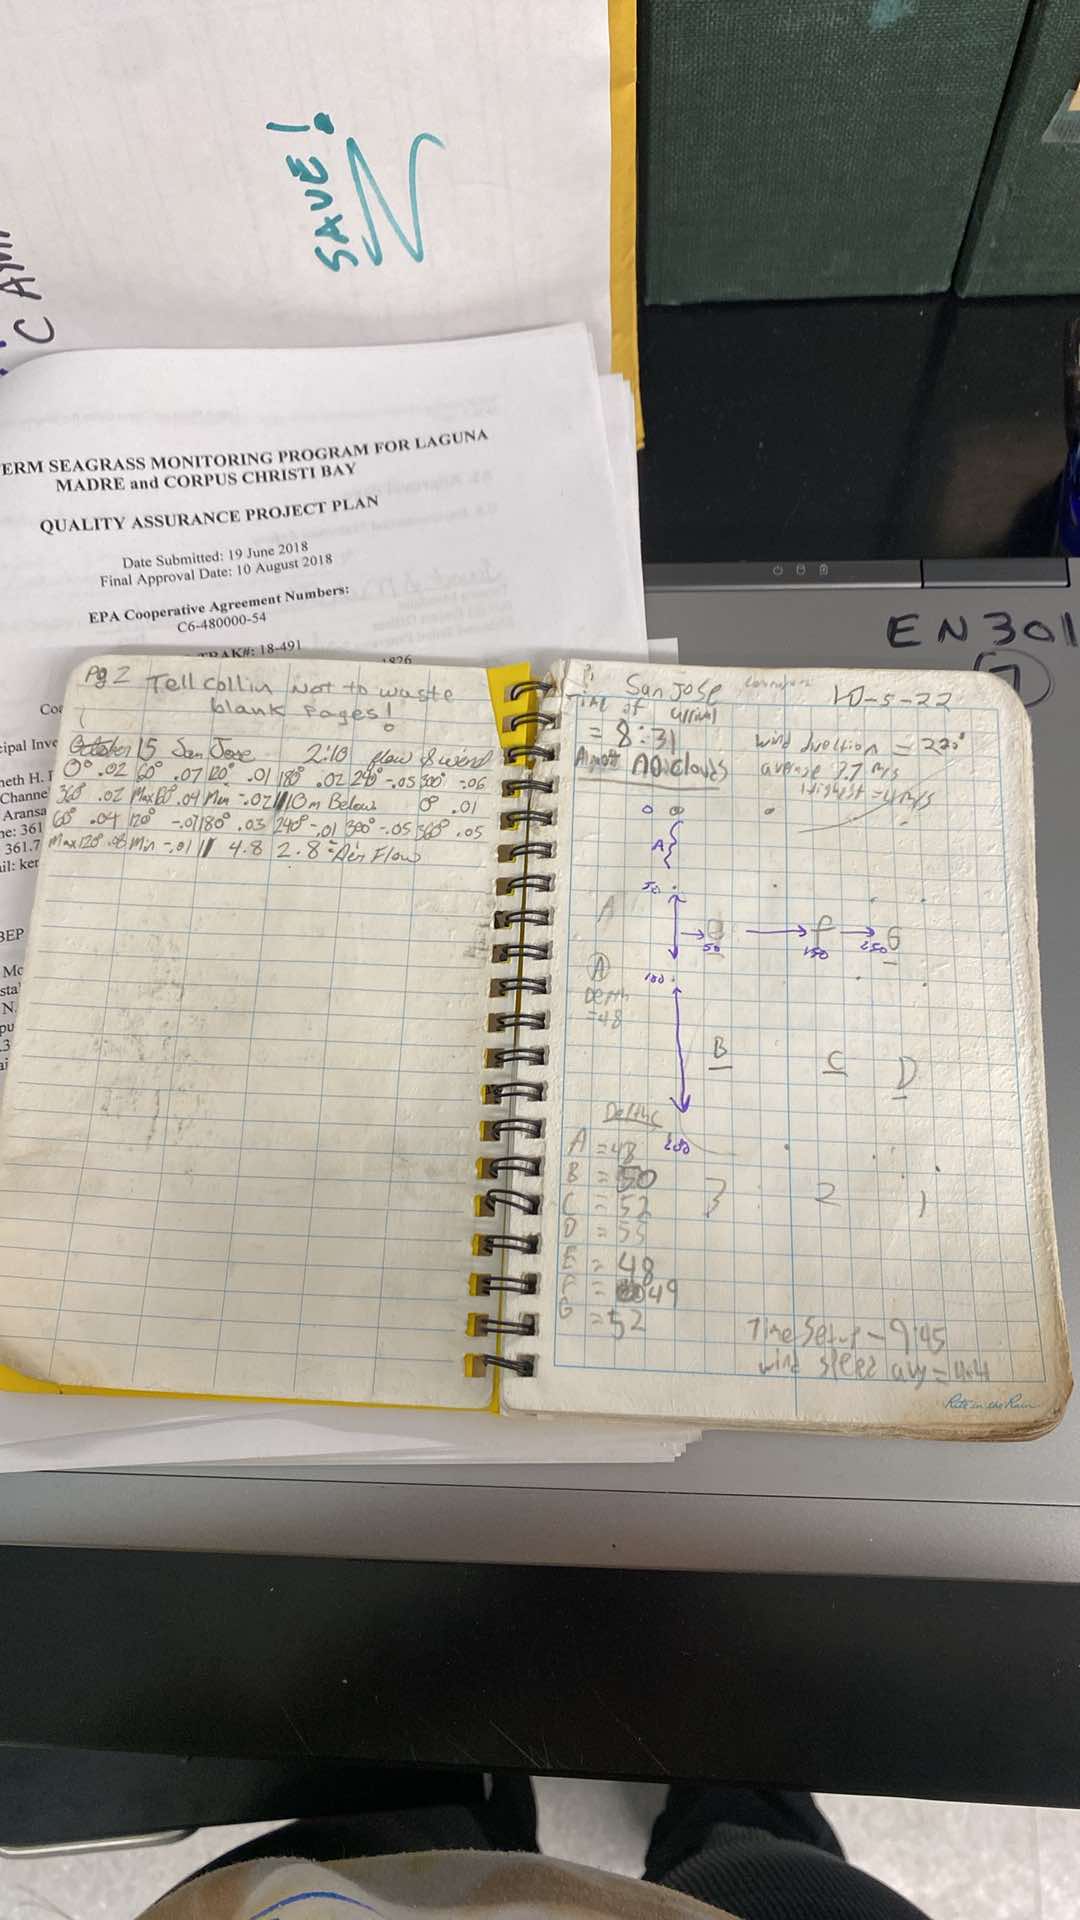 SAVE!
C
ERM SEAGRASS MONITORING PROGRAM FOR LAGUNA
MADRE and CORPUS CHRISTI BAY
QUALITY ASSURANCE PROJECT PLAN
Date Submitted: 19 June 2018
Final Approval Date: 10 August 2018
EPA Cooperative Agreement Numbers:
C6-480000-54
TRAK#: 18-491
1826
EN301
7
Pg 2 Tell Collin Not to waste
blank Pages!
October 5 San Jose 2:10 flow & wind
0° .02 60° .07 120° .01 180° .02 240° -.05 300° -.06
360° .02 Max .04 Min -.02 10m Below 0° .01
60° .04 120° -.01 180° .03 240° -.01 300° -.05 360° .05
Max 120° .08 Min -.01 4.8 2.8 = Air Flow
San Jose 10-5-22
Time of arrival
= 8:31
wind direction = 220°
Almost no clouds
average 3.7 m/s
Highest = 4 m/s
0
A
50
A
50
150
F
250
G
100
A
Depth
=48
B
C
D
200
Depths
A = 48
B = 50
C = 52
D = 55
E = 48
F = 49
G = 52
3 2 1
Time Setup - 9:45
wind speed avg = 4.4
Rite in the Rain